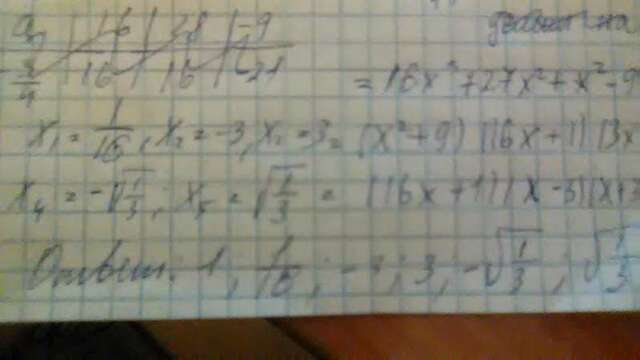 16 | 28 | -9
16 | 16 | -21
= 16x³ + 27x² + x² - 9
x₁ = 1/16, x₂ = -3, x₂ = 3 = (x² + 9)(16x + 1)(3x
x₄ = -√1/3; x₅ = √1/3 = (16x + 1)(x - 3)(x + 3
Ответ: 1; 1/16; -3; 3; -√1/3; √1/3